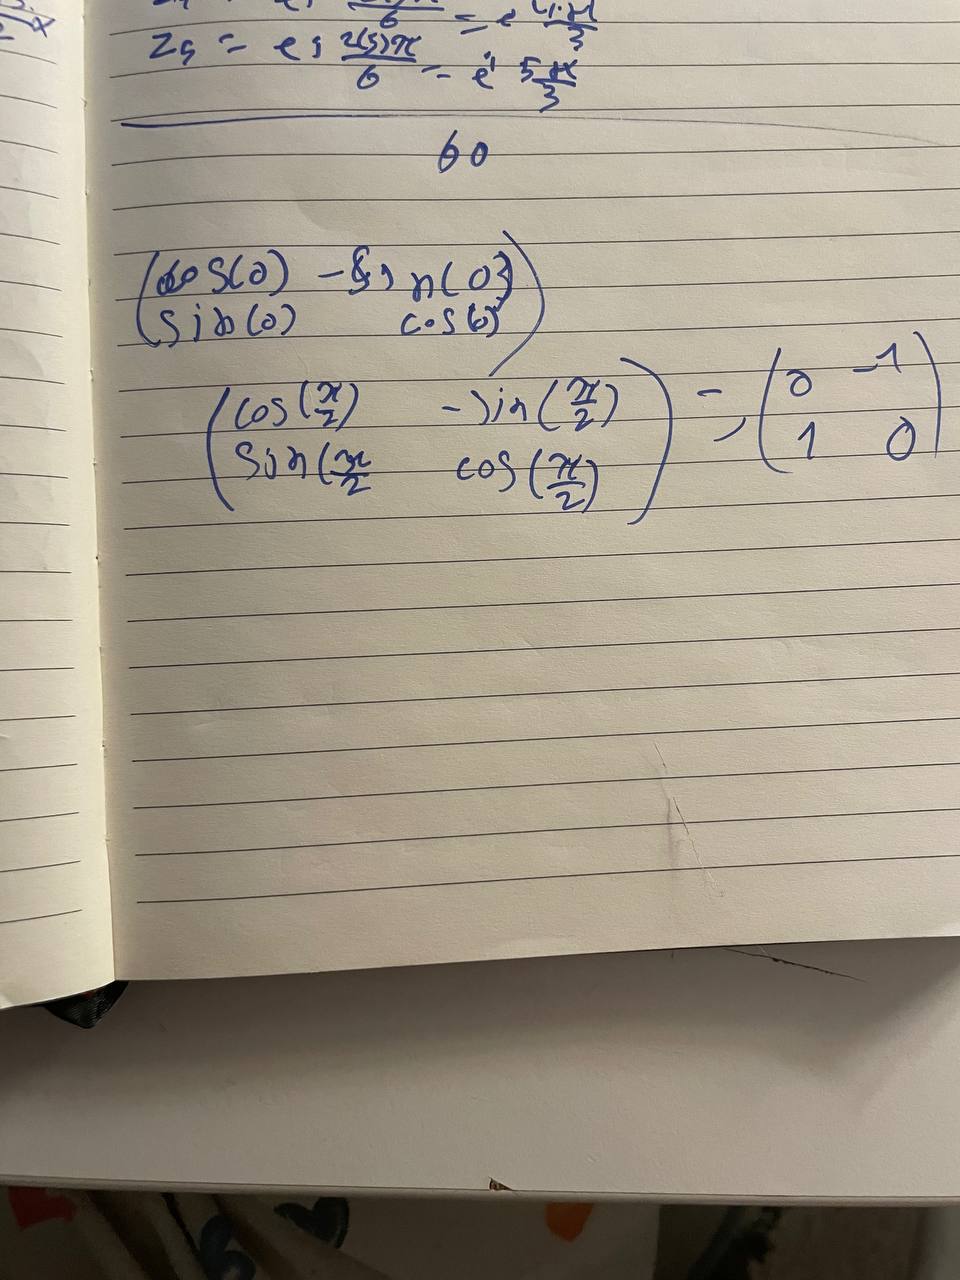 6 = e 3
z5 = ei 2(5)π/6 = ei 5π/3
60
(cos(0) -sin(0)
sin(0) cos(0))
(cos(π/2) -sin(π/2) = (0 -1
sin(π/2 cos(π/2)) 1 0)